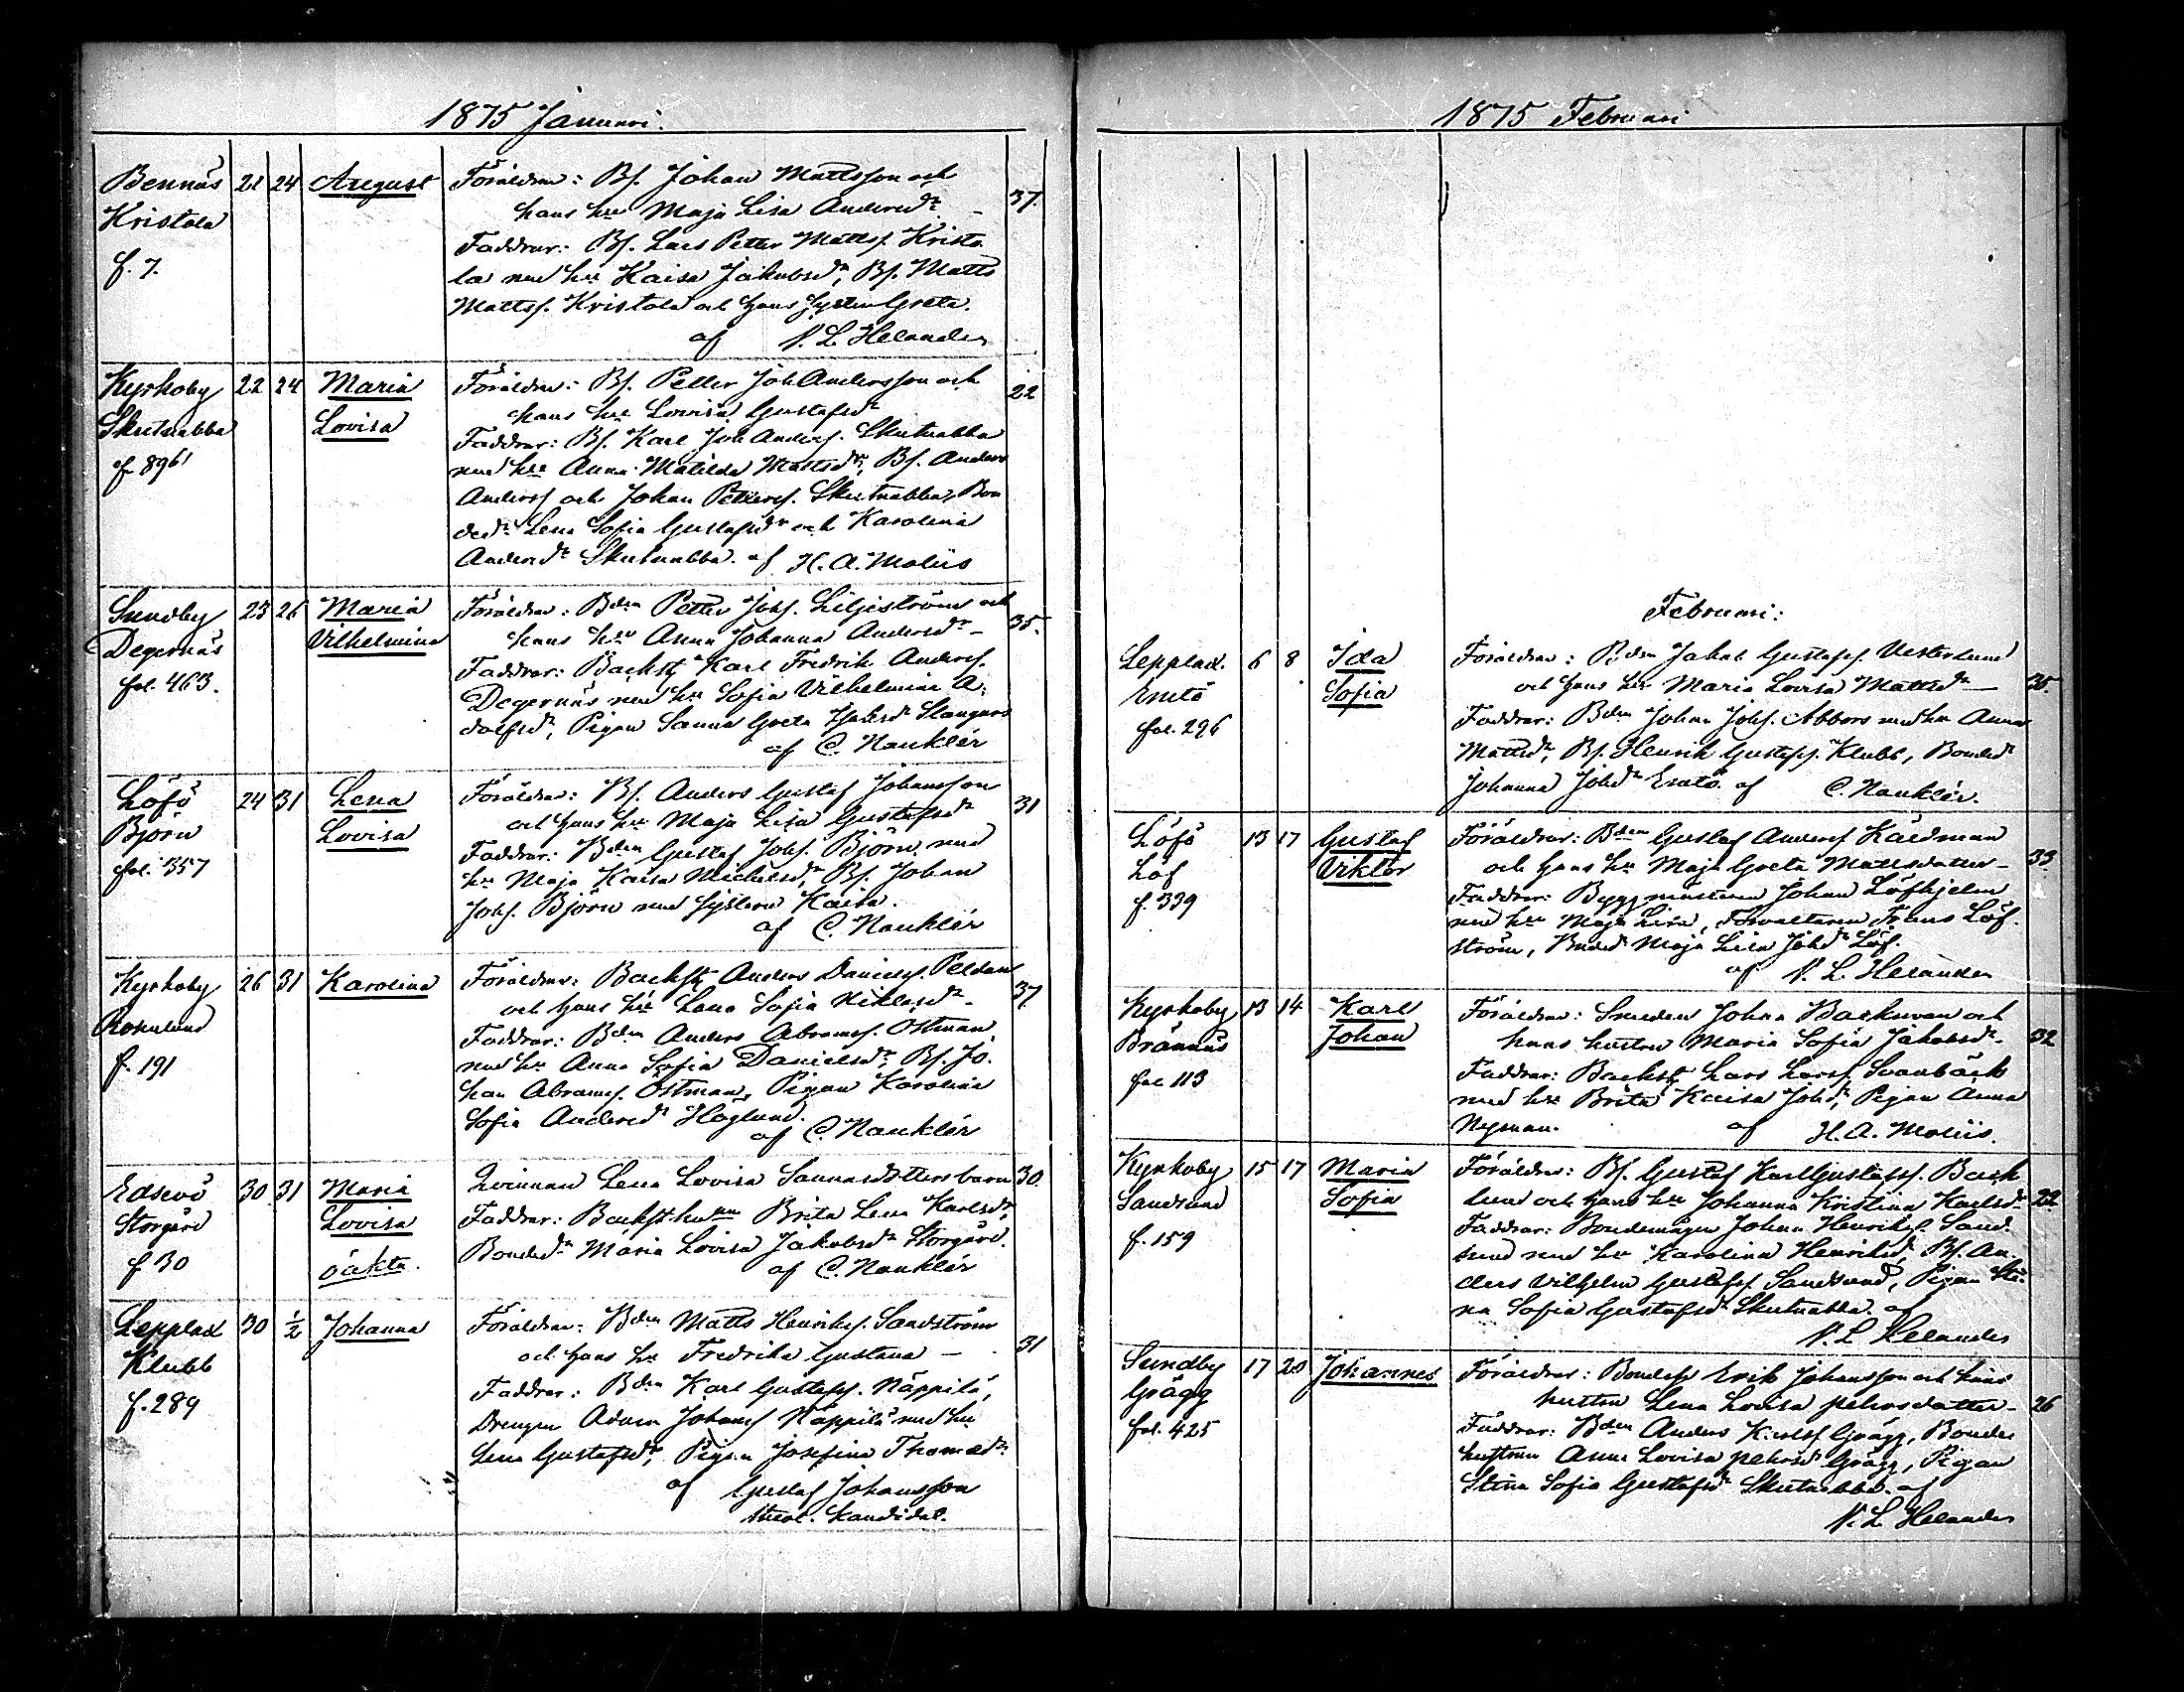 1875 Januari.
Bennäs 21 24 August Föräldrar: Bf. Johan Mattsson och
Kristola hans hu Maja Lisa Andersdr. – 37.
f. 7. Faddrar: Bf. Lars Petter Mattsf. Kristo
la med hu Kaisa Jakobsdr, Bf. Matts
Mattsf. Kristola och hans syster Greta.
af N. L. Helander
Kyrkoby 22 24 Maria Föräldrar: Bf. Petter Joh Andersson och 22
Skutnabba Lovisa hans hu Lovisa Gustafsdr
f. 896 Faddrar: Bf. Karl Joh Andersf. Skutnabba
med hu Anna Matilda Mattsdr, Bf. Anders
Andersf och Johan Pettersf. Skutnabba, Bon
dedr Lena Sofia Gustafsdr och Karolina
Andersdr Skutnabba. af H. A. Moliis
Sundby 23 26 Maria Föräldrar: Bdn Petter Johsf. Liljeström och 35.
Degernäs Vilhelmina hans hu Anna Johanna Andersdr –
fol. 463. Faddrar: Backst Karl Fredrik Andersf.
Degernäs med hu Sofia Vilhelmina A-
dolfsdr, Pigan Sanna Greta Slangars
af C. Nauklér
Löfö 24 31 Lena Föräldrar: Bf. Anders Gustaf Johansson 31
Björn Lovisa och hans hu Maja Lisa Gustafsdr
fol. 357 Faddrar: Bdn Gustaf Johsf. Björn med
hu Maja Kaisa Michelsdr, Bf. Johan
Johsf. Björn med systern Kaisa.
af C. Nauklér
Kyrkoby 26 31 Karolina Föräldrar: Backst Anders Danielsf. Peldan 37
Rosenlund och hans hu Lena Sofia Niklasdr –
f. 191 Faddrar: Bdn Anders Abramsf. Östman
med hu Anna Sofia Danielsdr, Bf. Jo-
han Abramsf. Östman, Pigan Karolina
Sofia Andersdr Haglund.
af C. Nauklér
Edsevö 30 31 Maria Qvinnan Lena Lovisa Sannasdotters barn 30.
Storgård Lovisa Faddrar: Backsthun Brita Lena Karlsdr,
f 30 oäkta. Bondedr Maria Lovisa Jakobsdr Storgård.
af C. Nauklér
Lepplax 30 1/2 Johanna Föräldrar: Bdn Matts Henriksf. Sandström
Klubb och hans hu Fredrika Gustava – 31
f. 289 Faddrar: Bdn Karl Gustafsf. Näppilä,
Drengen Adam Johansf Näppilä med hu
Lena Gustafsdr, Pigan Josefina Thomasdr
af Gustaf Johansson
theol. Kandidat.
1875 Februari
Februari:
Lepplax. 6 8 Ida Föräldrar: Bdn Jakob Gustafsf. Vesterlund
Sofia och hans hu Maria Lovisa Mattsdr – 35.
fol. 296 Faddrar: Bdn Johan Johsf. Abbors med hu Anna
Mattsdr, Bf. Henrik Gustafsf. Klubb, Bondedr
Johanna Johsdr af C. Nauklér.
Löfö 13 17 Gustaf Föräldrar: Bdn Gustaf Andersf Käldman
Löf Viktor och hans hu Maja Greta Mattsdotter – 33.
f. 339 Faddrar: Byggmästaren Johan Löfhjelm
med hu Maja Lisa, Förvaltaren Frans Löf-
ström, Bondedr Maja Lisa Johsdr Löf.
af N. L. Helander
Kyrkoby 13 14 Karl Föräldrar: Smeden Johan Backman och
Brännäs Johan hans hustru Maria Sofia Jakobsdr – 32
fol 113 Faddrar: Backst Lars Larsf Svanbäck
med hu Brita Kaisa Johsdr, Pigan Anna
Nyman. af H. A. Moliis.
Kyrkoby 15 17 Maria Föräldrar: Bf. Gustaf Karl Gustafsf. Back
Sandsund Sofia lund och hans hu Johanna Kristina Karlsdr 22
f. 159 Faddrar: Bondemågen Johan Henriksf. Sand-
sund med hu Karolina Henriksdr, Bf. An-
ders Vilhelm Gustafsf Sandsund, Pigan Sti-
na Sofia Gustafsdr Skutnabba. af
N. L. Helander
Sundby 17 20 Johannes Föräldrar: Bondesf Erik Johansson och hans
Grägg hustru Lena Lovisa Pehrsdotter – 26
fol. 425 Faddrar: Bdn Anders Karlsf Grägg, Bonde
hustrun Anna Lovisa Pehrsdr Grägg, Pigan
Stina Sofia Gustafsdr Skutnabba. af
N. L. Helander